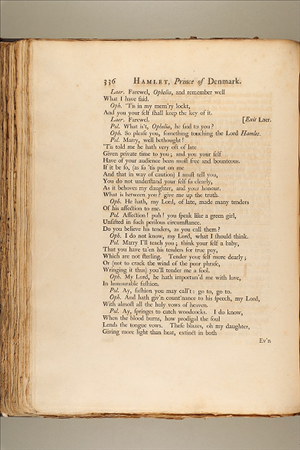 336 HAMLET, Prince of Denmark.
Laer. Farewel, Ophelia, and remember well
What I have said.
Oph. 'Tis in my mem'ry lockt,
And you your self shall keep the key of it.
Laer. Farewel. [Exit Laer.
Pol. What is't, Ophelia, he said to you?
Oph. So please you, something touching the Lord Hamlet.
Pol. Marry, well bethought!
'Tis told me he hath very oft of late
Given private time to you; and you your self
Have of your audience been most free and bounteous.
If it be so, (as so 'tis put on me
And that in way of caution) I must tell you,
You do not understand your self so clearly,
As it behoves my daughter, and your honour.
What is between you? give me up the truth.
Oph. He hath, my Lord, of late, made many tenders
Of his affection to me.
Pol. Affection! puh! you speak like a green girl,
Unsifted in such perilous circumstance.
Do you believe his tenders, as you call them?
Oph. I do not know, my Lord, what I should think.
Pol. Marry I'll teach you; think your self a baby,
That you have ta'en his tenders for true pay,
Which are not sterling. Tender your self more dearly;
Or (not to crack the wind of the poor phrase,
Wringing it thus) you'll tender me a fool.
Oph. My Lord, he hath importun'd me with love,
In honourable fashion.
Pol. Ay, fashion you may call't: go to, go to.
Oph. And hath giv'n count'nance to his speech, my Lord,
With almost all the holy vows of heaven.
Pol. Ay, springes to catch woodcocks. I do know,
When the blood burns, how prodigal the soul
Lends the tongue vows. These blazes, oh my daughter,
Giving more light than heat, extinct in both
Ev'n